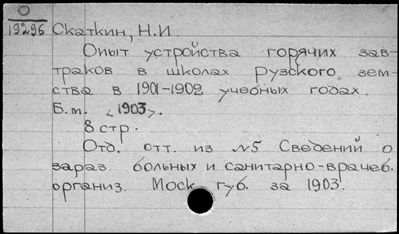 О
19296 Скаткин, Н.И.
Опыт устройства горячих зав-
траков в школах Рузского зем-
ства в 1901-1902 учебных годах.
Б.т. <1903>.
8 стр.
Отд. отт. из №5 Сведений о
зараз. больных и санитарно-врачеб.
организ. Моск. губ. за 1903.